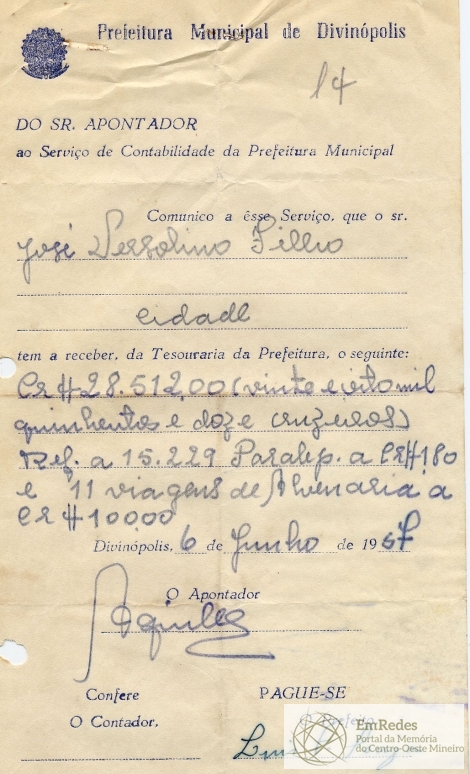 Prefeitura Municipal de Divinópolis
14
DO SR. APONTADOR
ao Serviço de Contabilidade da Prefeitura Municipal
Comunico a êsse Serviço, que o sr.
José Filho
cidade
tem a receber, da Tesouraria da Prefeitura, o seguinte:
CR$28.512,00 (vinte e oito mil
quinhentos e doze cruzeiros)
Ref. a 15.229 Paralep. a CR$1,80
e 11 viagens de Alvenaria a
CR$100,00
Divinópolis, 6 de Junho de 1957
O Apontador
Confere PAGUE-SE
O Contador, O Prefeito
EmRedes
Portal da Memória
do Centro-Oeste Mineiro